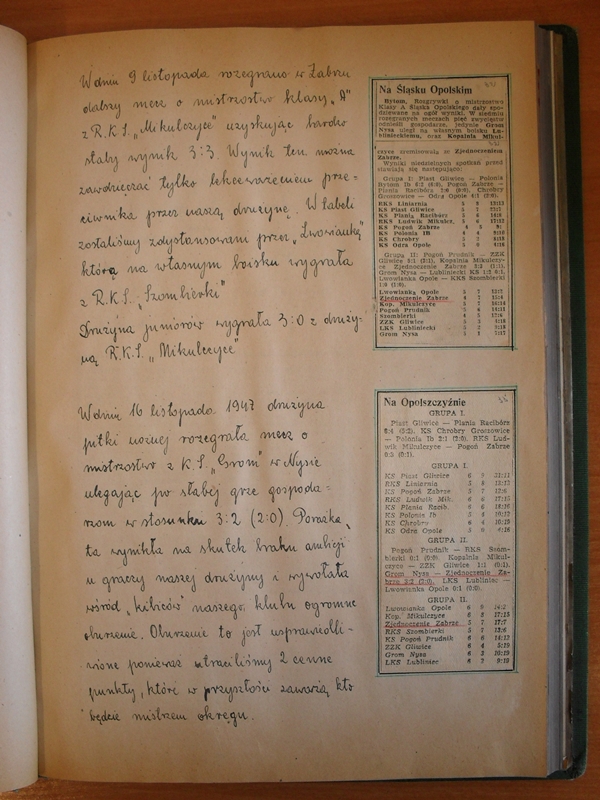 W dniu 9 listopada rozegrano w Zabrzu
dalszy mecz o mistrzostwo klasy „A"
z R.K.S. „Mikulczyce" uzyskując bardzo
słaby wynik 3:3. Wynik ten można
zawdzięczać tylko lekceważeniem prze-
ciwnika przez naszą drużynę. W tabeli
zostaliśmy zdystansowani przez „Lwowiankę"
która na własnym boisku wygrała
z R.K.S. „Szombierki"
Drużyna juniorów wygrała 3:0 z druży-
ną R.K.S. „Mikulczyce"
W dniu 16 listopada 1947 drużyna
piłki nożnej rozegrała mecz o
mistrzostwo z K.S. „Grom" w Nysie
ulegając po słabej grze gospoda-
rzom w stosunku 3:2 (2:0). Porażka
ta wynikła na skutek braku ambicji
u graczy naszej drużyny i wywołała
wśród „kibiców" naszego klubu ogromne
oburzenie. Oburzenie to jest usprawiedli-
wione ponieważ utraciliśmy 2 cenne
punkty, które w przyszłości zaważą kto
będzie mistrzem okręgu.
Na Śląsku Opolskim
Bytom. Rozgrywki o mistrzostwo
Klasy A Śląska Opolskiego dały spo-
dziewane na ogół wyniki. W siedmiu
rozegranych meczach pięć zwycięstw
odnieśli gospodarze, jedynie Grom
Nysa uległ na własnym boisku Lu-
blinieckiemu, oraz Kopalnia Mikul-
czyce zremisowała ze Zjednoczeniem
Zabrze.
Wyniki niedzielnych spotkań przed
stawiają się następująco:
Grupa I: Piast Gliwice — Polonia
Bytom Ib 6:2 Pogoń Zabrze —
Plania Racibórz Chrobry
Groszowice — Odra Opole
RKS Liniarnia
KS Piast Gliwice
KS Plania Racibórz
RKS Ludwik Mikulcz.
KS Pogoń Zabrze
KS Polonia IB
KS Chrobry
KS Odra Opole
Grupa II: Pogoń Prudnik — ZZK
Gliwice Kopalnia Mikulczy-
ce Zjednoczenie Zabrze
Grom Nysa — Lubliniecki KS
Lwowianka Opole — KKS Szombierki
Lwowianka Opole
Zjednoczenie Zabrze
Kop. Mikulczyce
Pogoń Prudnik
Szombierki
ZZK Gliwice
LKS Lubliniecki
Grom Nysa
Na Opolszczyźnie
GRUPA I.
Piast Gliwice — Plania Racibórz
6:4 (5:2). KS Chrobry Groszowice
— Polonia Ib 2:1 (2:0). RKS Lud-
wik Mikulczyce — Pogoń Zabrze
0:5 (0:1).
GRUPA I.
KS Piast Gliwice 6 9 31:11
RKS Liniarnia 5 8 13:13
KS Pogoń Zabrze 5 7 12:6
RKS Ludwik Mik. 6 6 17:15
KS Plania Racib. 6 6 16:16
KS Polonia Ib 5 4 10:12
KS Chrobry 6 4 10:19
KS Odra Opole 5 0 4:16
GRUPA II.
Pogoń Prudnik — RKS Szom-
bierki 0:1 (0:0). Kopalnia Mikul-
czyce — ZZK Gliwice 1:1 (0:1).
Grom Nysa — Zjednoczenie Za-
brze 3:2 (2:0). LKS Lubliniec —
Lwowianka Opole 0:1 (0:0).
GRUPA II.
Lwowianka Opole 6 9 14:2
Kop. Mikulczyce 6 8 17:15
Zjednoczenie Zabrze 5 7 17:7
RKS Szombierki 5 7 13:6
KS Pogoń Prudnik 6 6 14:13
ZZK Gliwice 6 4 5:19
Grom Nysa 6 3 10:19
LKS Lubliniec 6 7 9:19